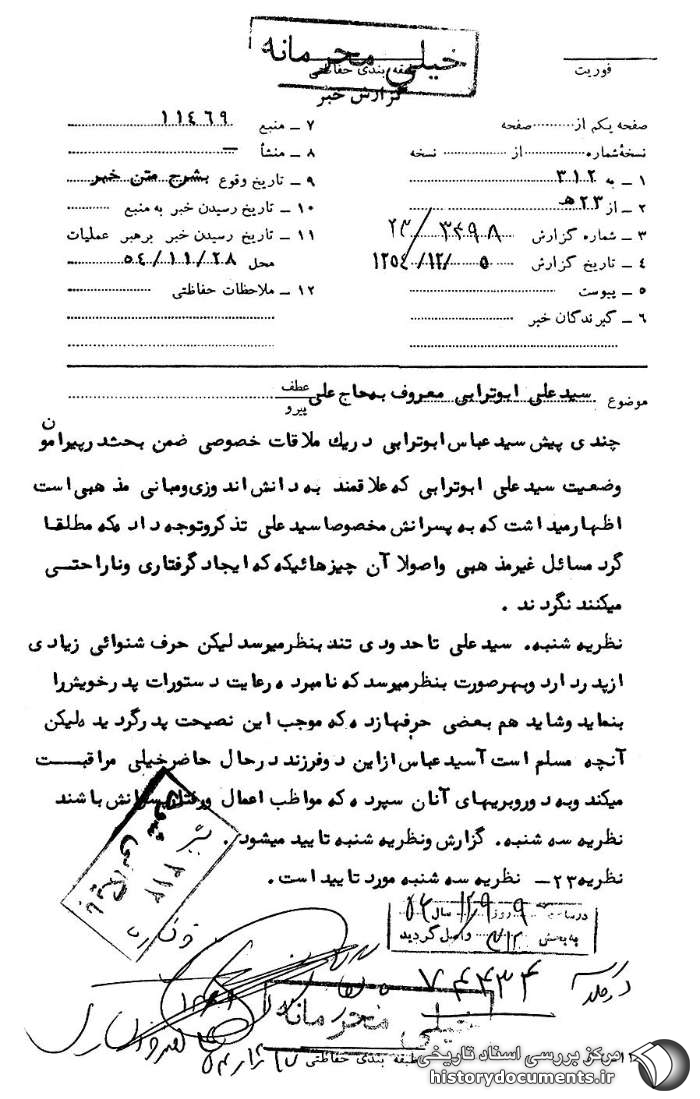 خیلی محرمانه
طبقه بندی حفاظتی
گزارش خبر
فوریت
صفحه یکم از صفحه
نسخهٔ شماره از نسخه
۱ ـ به ۳۱۲
۲ ـ از ۲۳هـ
۳ ـ شماره گزارش ۲۳/۳۴۹۸
۴ ـ تاریخ گزارش ۱۲۵۴/۱۲/۵
۵ ـ پیوست
۶ ـ گیرندگان خبر
۷ ـ منبع ۱۱۴۶۹
۸ ـ منشأ ـ
۹ ـ تاریخ وقوع بشرح متن خبر
۱۰ ـ تاریخ رسیدن خبر به منبع
۱۱ ـ تاریخ رسیدن خبر برهبر عملیات
محل ۵۴/۱۱/۲۸
۱۲ ـ ملاحظات حفاظتی
موضوع سید علی ابوترابی معروف بهحاج علی
عطف
پیرو
چندی پیش سید عباس ابوترابی در یك ملاقات خصوصی ضمن بحث در پیرامون
وضعیت سید علی ابوترابی که علاقمند به دانش اندوزی و مبانی مذهبی است
اظهار میداشت که به پسرانش مخصوصا سید علی تذکر و توجه داده که مطلقا
گرد مسائل غیر مذهبی و اصولا آن چیزهائیکه که ایجاد گرفتاری و ناراحتی
میکنند نگردند .
نظریه شنبه. سید علی تا حدودی تند بنظر میرسد لیکن حرف شنوائی زیادی
از پدر دارد و بهر صورت بنظر میرسد که نامبرده رعایت دستورات پدر خویش را
بنماید و شاید هم بعضی حرفها زده که موجب این نصیحت پدر گردیده ولیکن
آنچه مسلم است آسید عباس از این دو فرزند در حال حاضر خیلی مراقبت
میکند و به دور و بریهای آنان سپرده که مواظب اعمال و رفتار پسرانش باشند
نظریه سه شنبه. گزارش و نظریه شنبه تایید میشود.
نظریه ۲۳ـ نظریه سه شنبه مورد تایید است.
به بخش ۳۱۲ واصل گردید
۷۴۴۳۴
خیلی محرمانه
طبقه بندی حفاظتی
مرکز بررسی اسناد تاریخی
historydocuments.ir